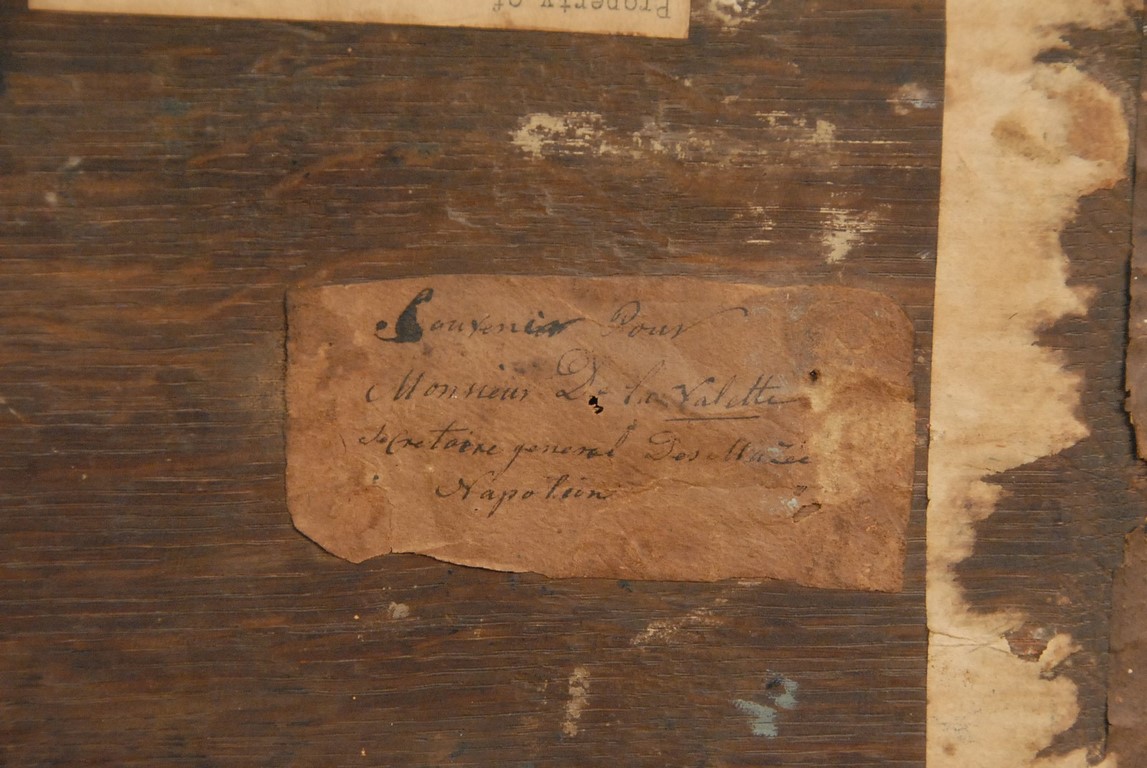 Property of
Souvenir Pour
Monsieur De la Valette
Secretaire general Des Muzée
Napoléon